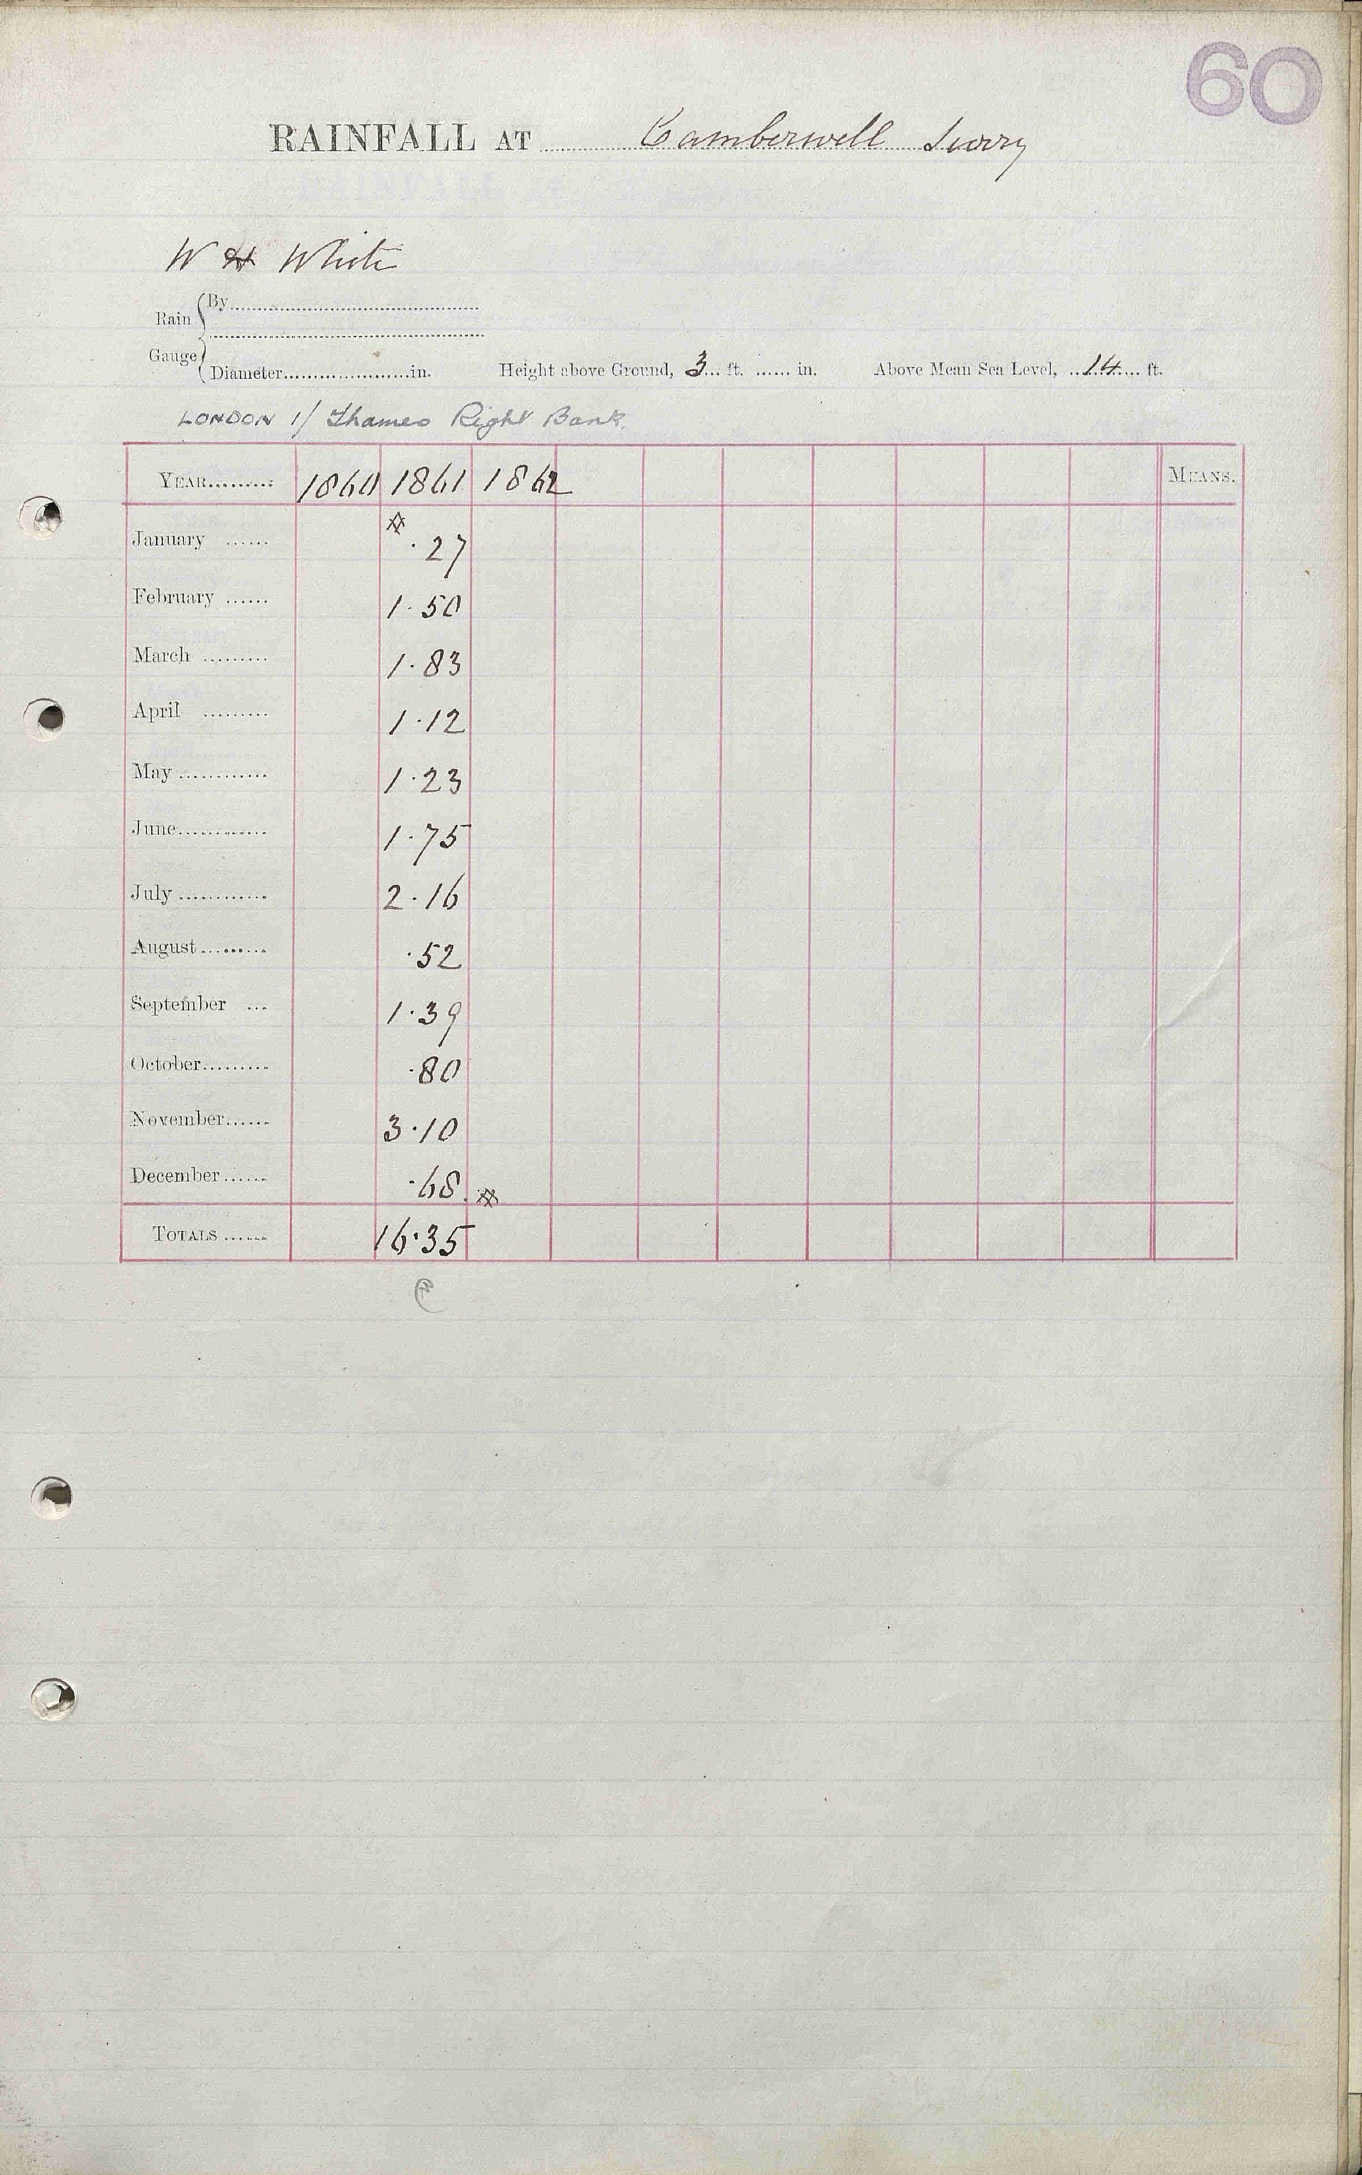 60
RAINFALL AT Camberwell Surrey
W H White
Rain Gauge
By
Diameter in. Height above Ground, 3 ft. in. Above Mean Sea Level, 14 ft.
LONDON 1/ Thames Right Bank.
YEAR 1860 1861 1862 MEANS.
January # .27
February 1.50
March 1.83
April 1.12
May 1.23
June 1.75
July 2.16
August .52
September 1.39
October .80
November 3.10
December .68 #
TOTALS 16.35